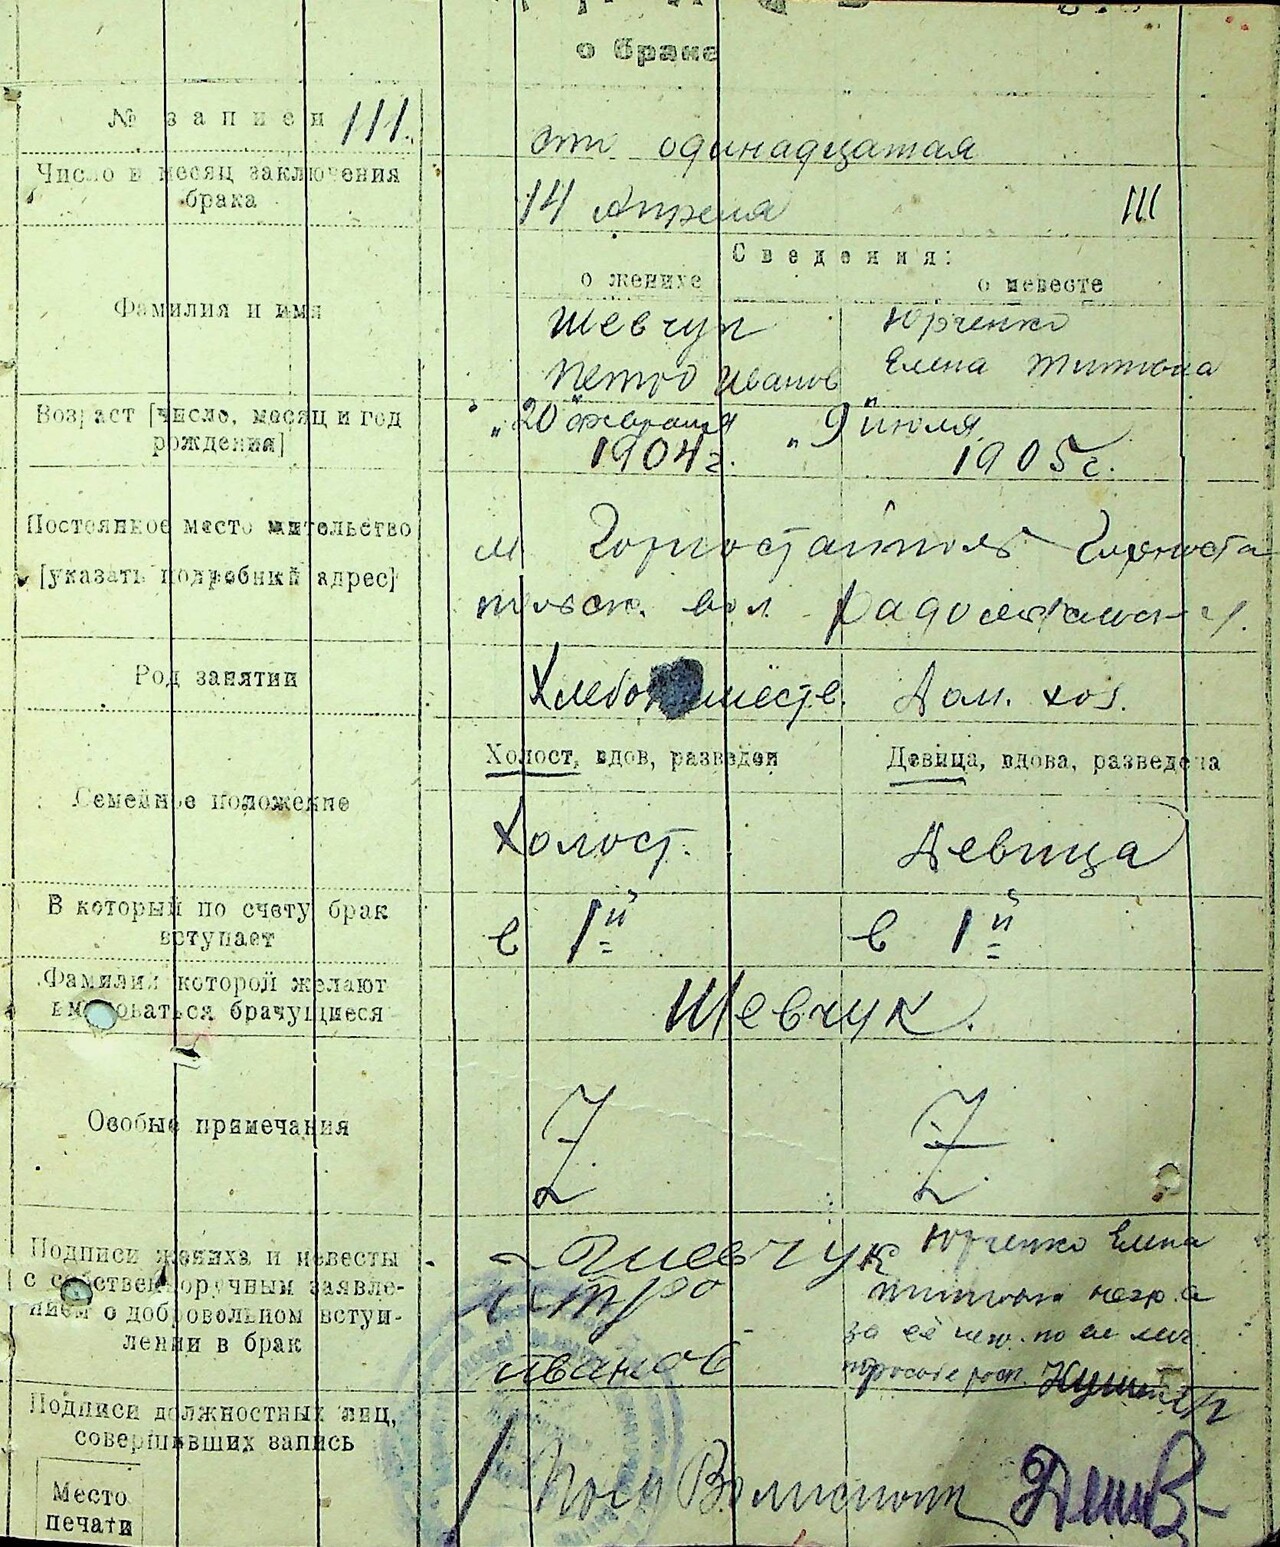 о браке
№ записи 111.
сто одинадцатая
Число и месяц заключения
брака
14 Апреля
111
Сведения:
о женихе
о невесте
Фамилия и имя
Шевчук
Петро Иванов
Юрченко
Елена Титовна
Возраст [число, месяц и год
рождения]
„20" февраля
1904 г.
„9" июля
1905 г.
Постоянное место жительство
[указать подробный адрес]
м. Горностайполь Горноста
польск. вол. Радомысльск у.
Род занятий
Хлебопашеств.
Дом. хоз.
Семейное положение
Холост, вдов, разведен
Девица, вдова, разведена
Холост.
Девица
В который по счету брак
вступает
в 1й
в 1й
Фамилия которой желают
именоваться брачущиеся
Шевчук.
Особые примечания
Z
Z
Подписи жениха и невесты
с собственноручным заявле-
нием о добровольном вступ-
лении в брак
Шевчук
Петро
Иванов
Юрченко Елена
Титовна негр. а
за её по ее лич
просьбе росп.
Подписи должностных лиц,
совершивших запись
Место
печати